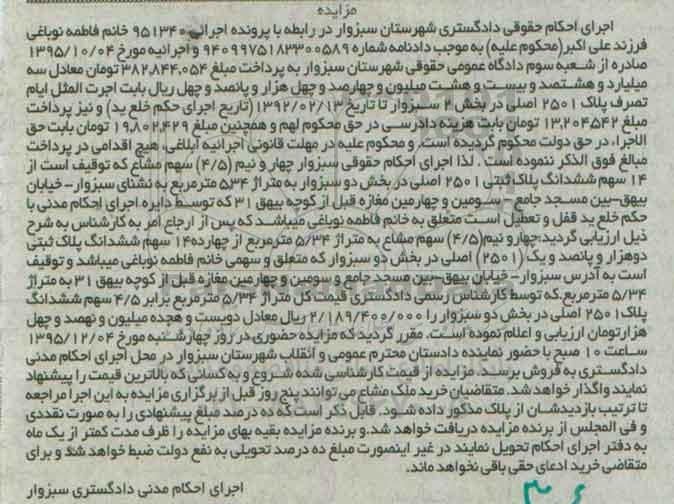 مزایده
اجرای احکام حقوقی دادگستری شهرستان سبزوار در رابطه با پرونده اجرائی ۹۵۱۳۴۰ خانم فاطمه نوباغی
فرزند علی اکبر(محکوم علیه) به موجب دادنامه شماره ۹۴۰۹۹۷۵۱۸۲۳۰۰۵۸۹ و اجرائیه مورخ ۱۳۹۵/۱۰/۰۴
صادره از شعبه سوم دادگاه عمومی حقوقی شهرستان سبزوار به پرداخت مبلغ ۳۸۲,۸۴۴,۰۵۴ تومان معادل سه
میلیارد و هشتصد و بیست و هشت میلیون و چهارصد و چهل هزار و پانصد و چهل ریال بابت اجرت المثل ایام
تصرف پلاک ۲۵۰۱ اصلی در بخش ۲ سبزوار تا تاریخ ۱۳۹۲/۰۲/۱۳(تاریخ اجرای حکم خلع ید) و نیز پرداخت
مبلغ ۱۳,۲۰۴۵۴۲ تومان بابت هزینه دادرسی در حق محکوم لهم و همچنین مبلغ ۱۹,۸۰۲,۴۲۹ تومان بابت حق
الاجراء در حق دولت محکوم گردیده است. و محکوم علیه در مهلت قانونی اجرائیه ابلاغی، هیچ اقدامی در پرداخت
مبالغ فوق الذکر ننموده است . لذا اجرای احکام حقوقی سبزوار چهار و نیم (۴/۵) سهم مشاع که توقیف است از
۱۴ سهم ششدانگ پلاک ثبتی ۲۵۰۱ اصلی در بخش دو سبزوار به متراژ ۵۳۴ مترمربع به نشانی سبزوار– خیابان
بیهق–بین مسجد جامع – سومین و چهارمین مغازه قبل از کوچه بیهق ۳۱ که توسط دایره اجرای احکام مدنی با
حکم خلع ید قفل و تعطیل است متعلق به خانم فاطمه نوباغی میباشد که پس از ارجاع امر به کارشناس به شرح
ذیل ارزیابی گردید:چهار و نیم(۴/۵) سهم مشاع به متراژ ۵/۳۴ مترمربع از چهارده۱۴ سهم ششدانگ پلاک ثبتی
دوهزار و پانصد و یک (۲۵۰۱) اصلی در بخش دو سبزوار که متعلق و سهمی خانم فاطمه نوباغی میباشد و توقیف
است به آدرس سبزوار– خیابان بیهق–بین مسجد جامع و سومین و چهارمین مغازه قبل از کوچه بیهق ۳۱ به متراژ
۵/۳۴ مترمربع.که توسط کارشناس رسمی دادگستری قیمت کل متراژ ۵/۳۴ مترمربع برابر ۴/۵ سهم ششدانگ
پلاک۲۵۰۱ اصلی در بخش دو سبزوار را ۲/۱۸۹/۴۰۰/۰۰۰ ریال معادل دویست و هجده میلیون و نهصد و چهل
هزارتومان ارزیابی و اعلام نموده است. مقرر گردید که مزایده حضوری در روز چهارشنبه مورخ ۱۳۹۵/۱۲/۰۴
ساعت ۱۰ صبح با حضور نماینده دادستان محترم عمومی و انقلاب شهرستان سبزوار در محل اجرای احکام مدنی
دادگستری به فروش برسد. مزایده از قیمت کارشناسی شده شروع و به کسانی که بالاترین قیمت را پیشنهاد
نمایند واگذار خواهد شد. متقاضیان خرید ملک مشاع می توانند پنج روز قبل از برگزاری مزایده به این اجرا مراجعه
تا ترتیب بازدیدشان از پلاک مذکور داده شود. قابل ذکر است که ده درصد مبلغ پیشنهادی را به صورت نقدی
و فی المجلس از برنده مزایده دریافت خواهد شد.و برنده مزایده بقیه بهای مزایده را ظرف مدت کمتر از یک ماه
به دفتر اجرای احکام تحویل نمایند در غیر اینصورت مبلغ ده درصد تحویلی به نفع دولت ضبط خواهد شد و برای
متقاضی خرید ادعای حقی باقی نخواهد ماند.
اجرای احکام مدنی دادگستری سبزوار